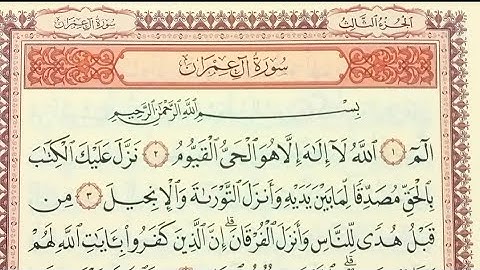 الجزء الثالث
سورة آل عمران
سُورَةُ آلِ عِمْرَانَ
بِسْمِ اللَّهِ الرَّحْمَٰنِ الرَّحِيمِ
الٓمٓ ١ اللَّهُ لَآ إِلَٰهَ إِلَّا هُوَ الْحَىُّ الْقَيُّومُ ٢ نَزَّلَ عَلَيْكَ الْكِتَٰبَ
بِالْحَقِّ مُصَدِّقًا لِّمَا بَيْنَ يَدَيْهِ وَأَنزَلَ التَّوْرَىٰةَ وَالْإِنجِيلَ ٣ مِن
قَبْلُ هُدًى لِّلنَّاسِ وَأَنزَلَ الْفُرْقَانَ ۗ إِنَّ الَّذِينَ كَفَرُوا۟ بِـَٔايَٰتِ اللَّهِ لَهُمْ